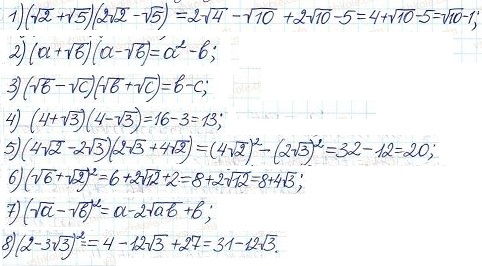 1) (√2 + √5)(2√2 - √5) = 2√4 - √10 + 2√10 - 5 = 4 + √10 - 5 = √10 - 1;
2) (a + √b)(a - √b) = a² - b;
3) (√b - √c)(√b + √c) = b - c;
4) (4 + √3)(4 - √3) = 16 - 3 = 13;
5) (4√2 - 2√3)(2√3 + 4√2) = (4√2)² - (2√3)² = 32 - 12 = 20;
6) (√6 + √2)² = 6 + 2√12 + 2 = 8 + 2√12 = 8 + 4√3;
7) (√a - √b)² = a - 2√ab + b;
8) (2 - 3√3)² = 4 - 12√3 + 27 = 31 - 12√3.